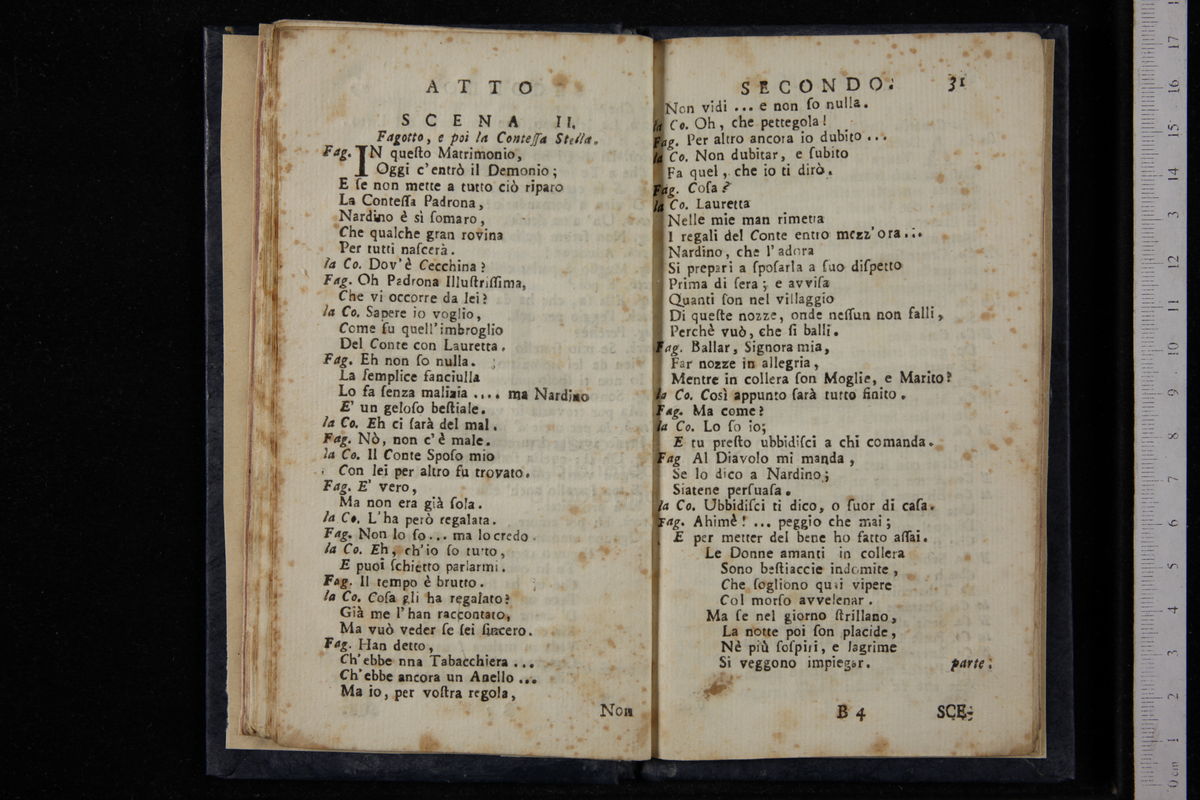 ATTO
SCENA II.
Fagotto, e poi la Conteſſa Stella.
Fag. IN queſto Matrimonio,
Oggi c'entrò il Demonio;
E ſe non mette a tutto ciò riparo
La Conteſſa Padrona,
Nardino è sì ſomaro,
Che qualche gran rovina
Per tutti naſcerà.
la Co. Dov'è Cecchina?
Fag. Oh Padrona Illuſtriſſima,
Che vi occorre da lei?
la Co. Sapere io voglio,
Come fu quell'imbroglio
Del Conte con Lauretta.
Fag. Eh non ſo nulla.
La ſemplice fanciulla
Lo fa ſenza malizia .... ma Nardino
E' un geloſo beſtiale.
la Co. Eh ci ſarà del mal.
Fag. Nò, non c'è male.
la Co. Il Conte Spoſo mio
Con lei per altro fu trovato.
Fag. E' vero,
Ma non era già ſola.
la Co. L'ha però regalata.
Fag. Non lo ſo... ma lo credo.
la Co. Eh, ch'io ſo tutto,
E puoi ſchietto parlarmi.
Fag. Il tempo è brutto.
la Co. Coſa gli ha regalato?
Già me l'han raccontato,
Ma vuò veder ſe ſei ſincero.
Fag. Han detto,
Ch'ebbe nna Tabacchiera ...
Ch'ebbe ancora un Anello ...
Ma io, per voſtra regola,
Non
SECONDO. 31
Non vidi ... e non ſo nulla.
la Co. Oh, che pettegola!
Fag. Per altro ancora io dubito ...
la Co. Non dubitar, e ſubito
Fa quel, che io ti dirò.
Fag. Coſa?
la Co. Lauretta
Nelle mie man rimetta
I regali del Conte entro mezz'ora...
Nardino, che l'adora
Si prepari a ſpoſarla a ſuo diſpetto
Prima di ſera; e avviſa
Quanti ſon nel villaggio
Di queſte nozze, onde neſſun non falli,
Perchè vuò, che ſi balli.
Fag. Ballar, Signora mia,
Far nozze in allegria,
Mentre in collera ſon Moglie, e Marito?
la Co. Così appunto ſarà tutto finito.
Fag. Ma come?
la Co. Lo ſo io;
E tu preſto ubbidiſci a chi comanda.
Fag Al Diavolo mi manda,
Se lo dico a Nardino;
Siatene perſuaſa.
la Co. Ubbidiſci ti dico, o fuor di caſa.
Fag. Ahimè! ... peggio che mai;
E per metter del bene ho fatto aſſai.
Le Donne amanti in collera
Sono beſtiaccie indomite,
Che ſogliono quai vipere
Col morſo avvelenar.
Ma ſe nel giorno ſtrillano,
La notte poi ſon placide,
Nè più ſoſpiri, e lagrime
Si veggono impiegar. parte.
B 4 SCE-